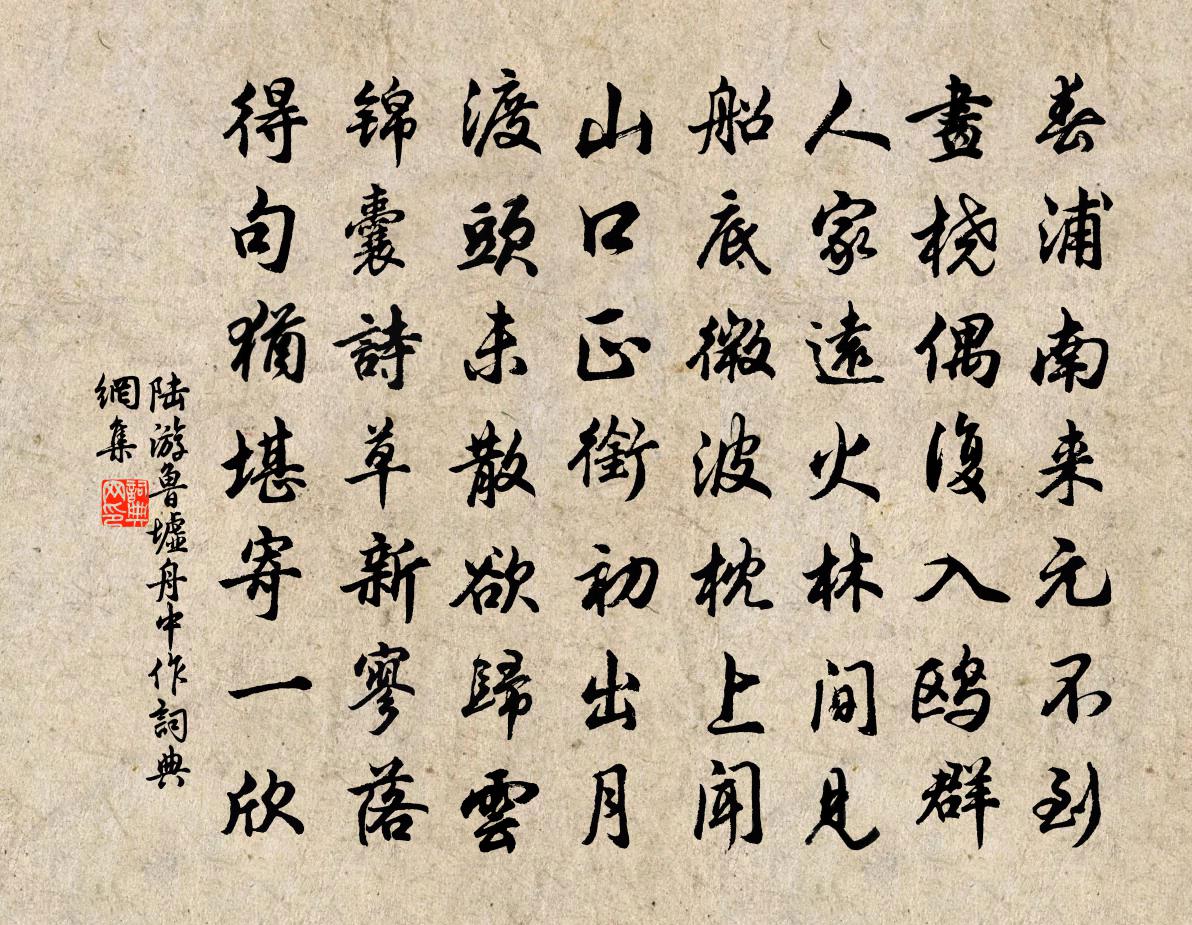 春浦南来元不到
畫桡偶復入鸥群
人家遠火林間見
船底微波枕上聞
山口正銜初出月
渡頭未散欲歸雲
锦囊詩草新寥落
得句猶堪寄一欣
陆游魯墟舟中作詞典
網集
詞典
网印